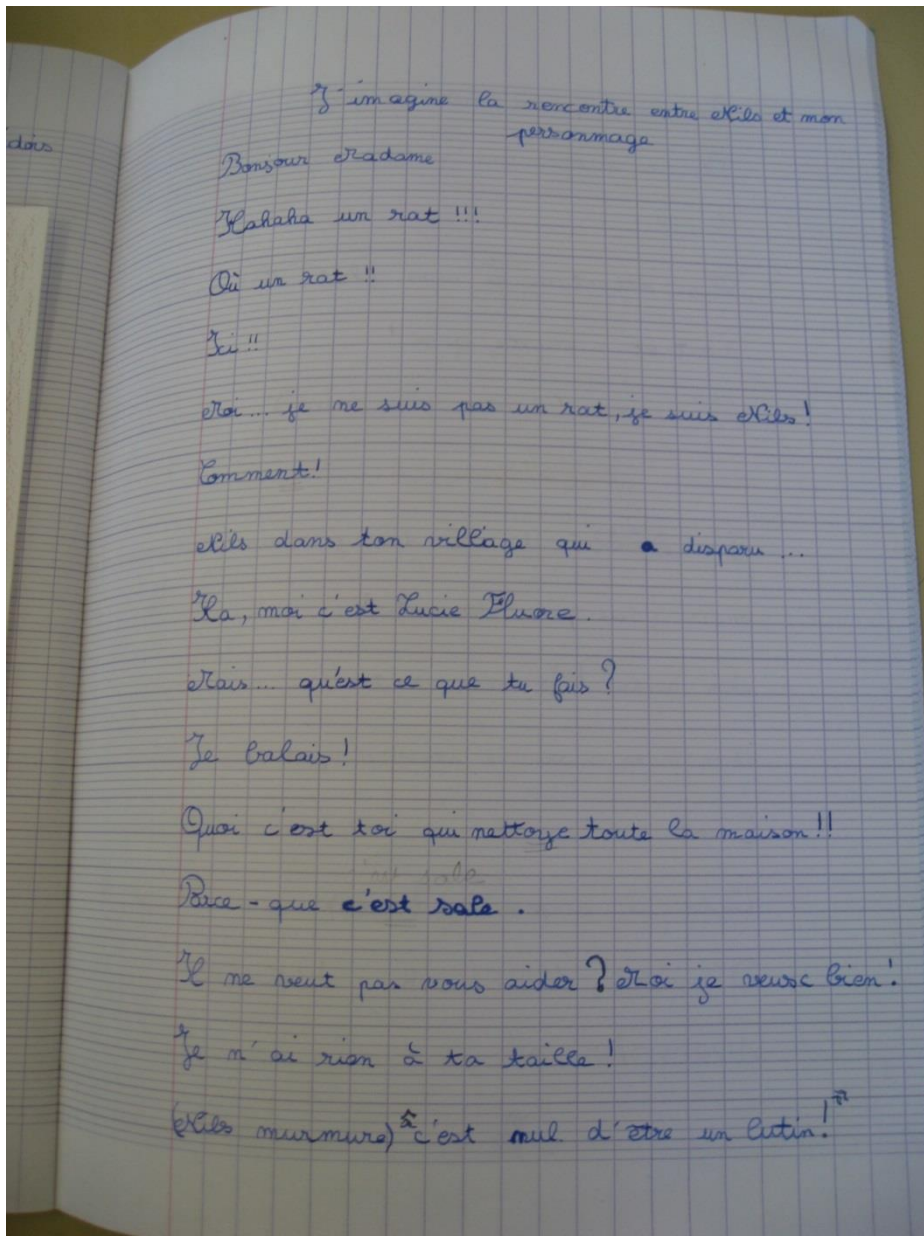 J'imagine la rencontre entre Nils et mon
personmage
Bonjour Madame
Hahaha un rat !!!
Où un rat !!
Ici !!
Moi... je ne suis pas un rat, je suis Nils !
Comment !
Nils dans ton village qui a disparu ...
Ha, moi c'est Lucie
Mais... qu'est ce que tu fais ?
Je balais !
Quoi c'est toi qui nettoye toute la maison !!
Parce-que c'est sale .
Il ne veut pas vous aider ? Moi je veux bien !
Je n'ai rien à ta taille !
(Nils murmure) "c'est nul d'être un lutin !"